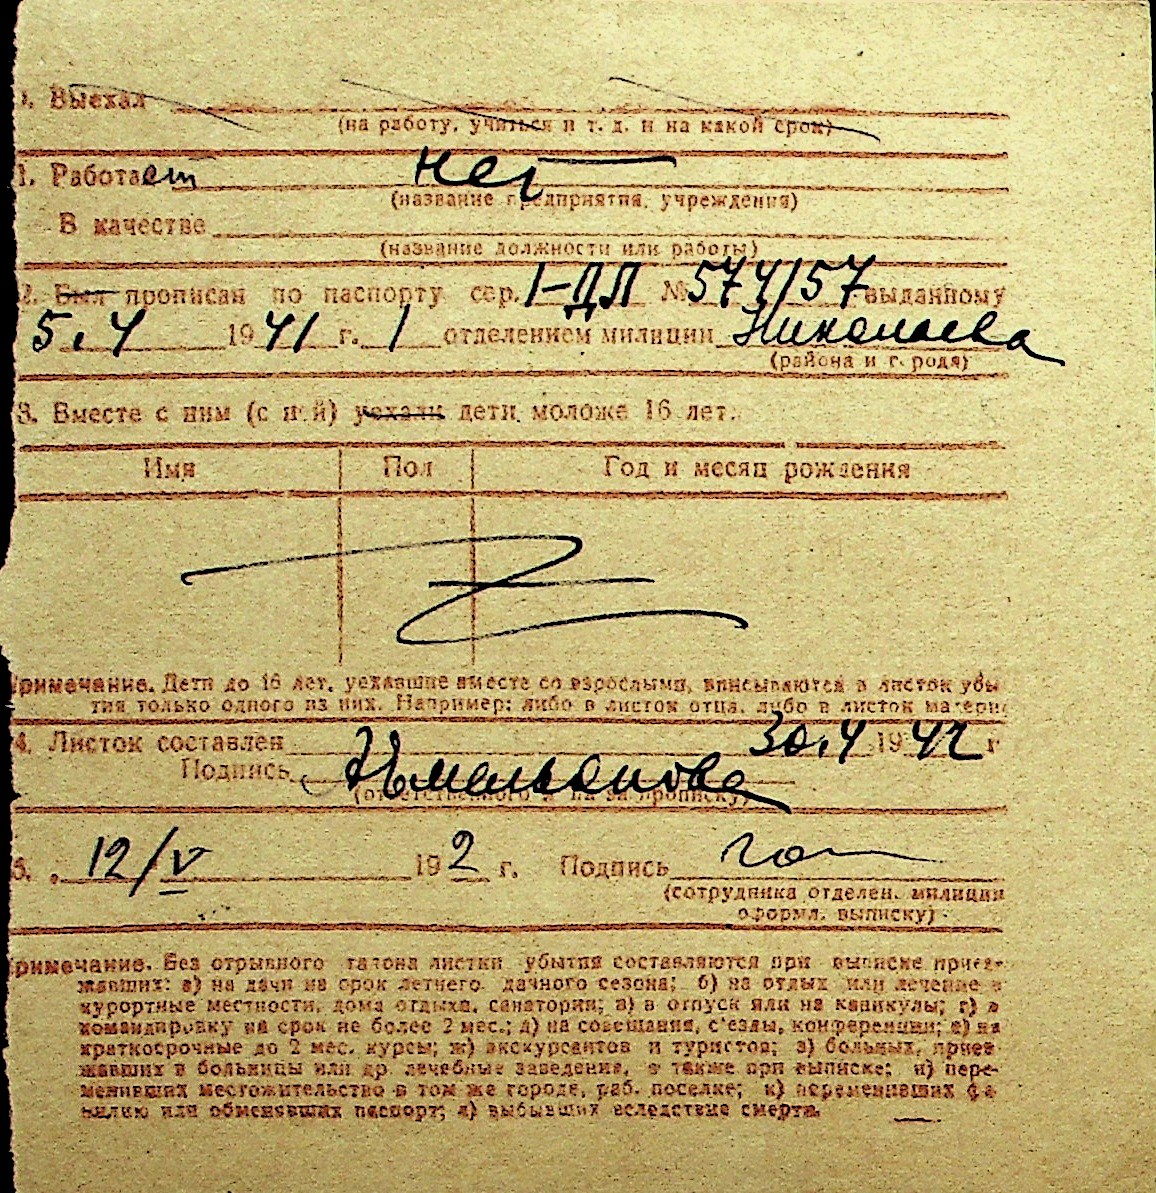 . Выехал
(на работу, учиться и т. д. и на какой срок)
1. Работает нет
(название предприятия, учреждения)
В качестве
(название должности или работы)
2. Был прописан по паспорту сер. I-ДЛ № 574157 выданному
5.4 1941 г. 1 отделением милиции Николаева
(района и города)
3. Вместе с ним (с ней) уехали дети моложе 16 лет.
Имя Пол Год и месяц рождения
Примечание. Дети до 16 лет, уехавшие вместе со взрослыми, вписываются в листок убы
тия только одного из них. Например: либо в листок отца, либо в листок матери
4. Листок составлен 30.4 1942 г
Подпись Емельянова
(ответственного за прописку)
5. „ 12/V 192 г. Подпись
(сотрудника отделен. милиции
оформл. выписку)
Примечание. Без отрывного талона листки убытия составляются при выписке приез-
жавших: а) на дачи на срок летнего дачного сезона; б) на отдых или лечение в
курортные местности, дома отдыха, санатории; в) в отпуск или на каникулы; г) в
командировку на срок не более 2 мес.; д) на совещания, с'езды, конференции; е) на
краткосрочные до 2 мес. курсы; ж) экскурсантов и туристов; з) больных, приез-
жавших в больницы или др. лечебные заведения, а также при выписке; и) пере-
менивших местожительство в том же городе, раб. поселке; к) переменивших фа
милию или обменявших паспорт; л) выбывших вследствие смерти.